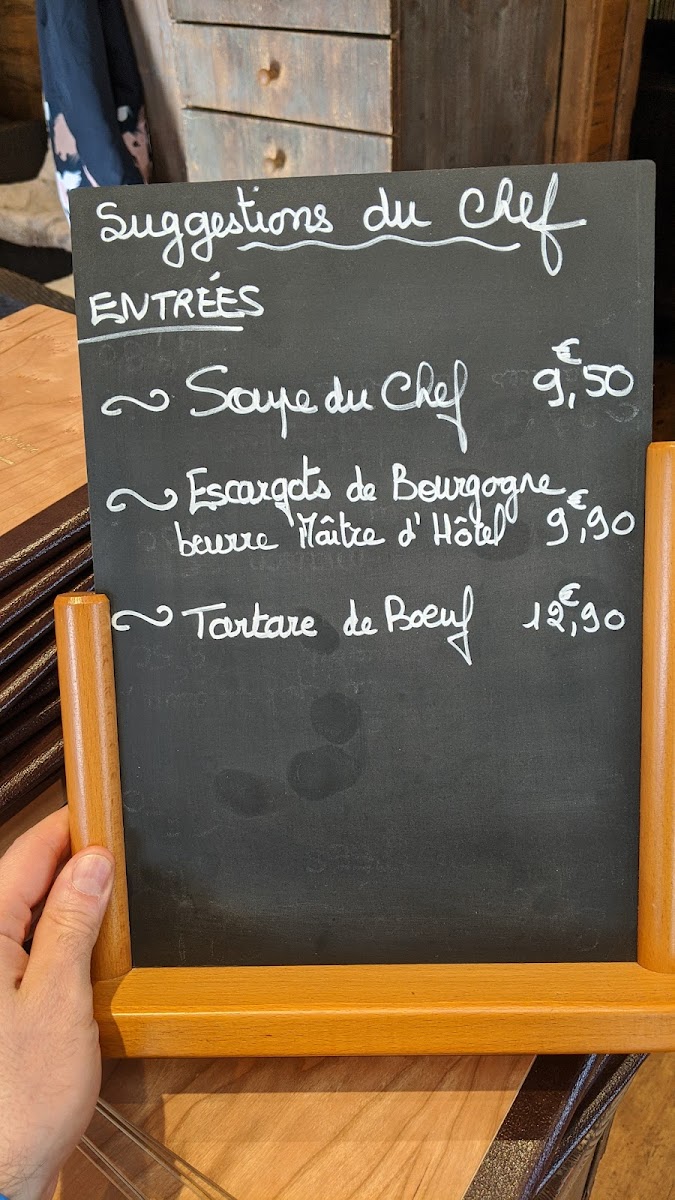 Suggestions du Chef
ENTRÉES
~ Soupe du Chef 9,€50
~ Escargots de Bourgogne
beurre Maître d'Hôtel 9,€90
~ Tartare de Boeuf 12,€90